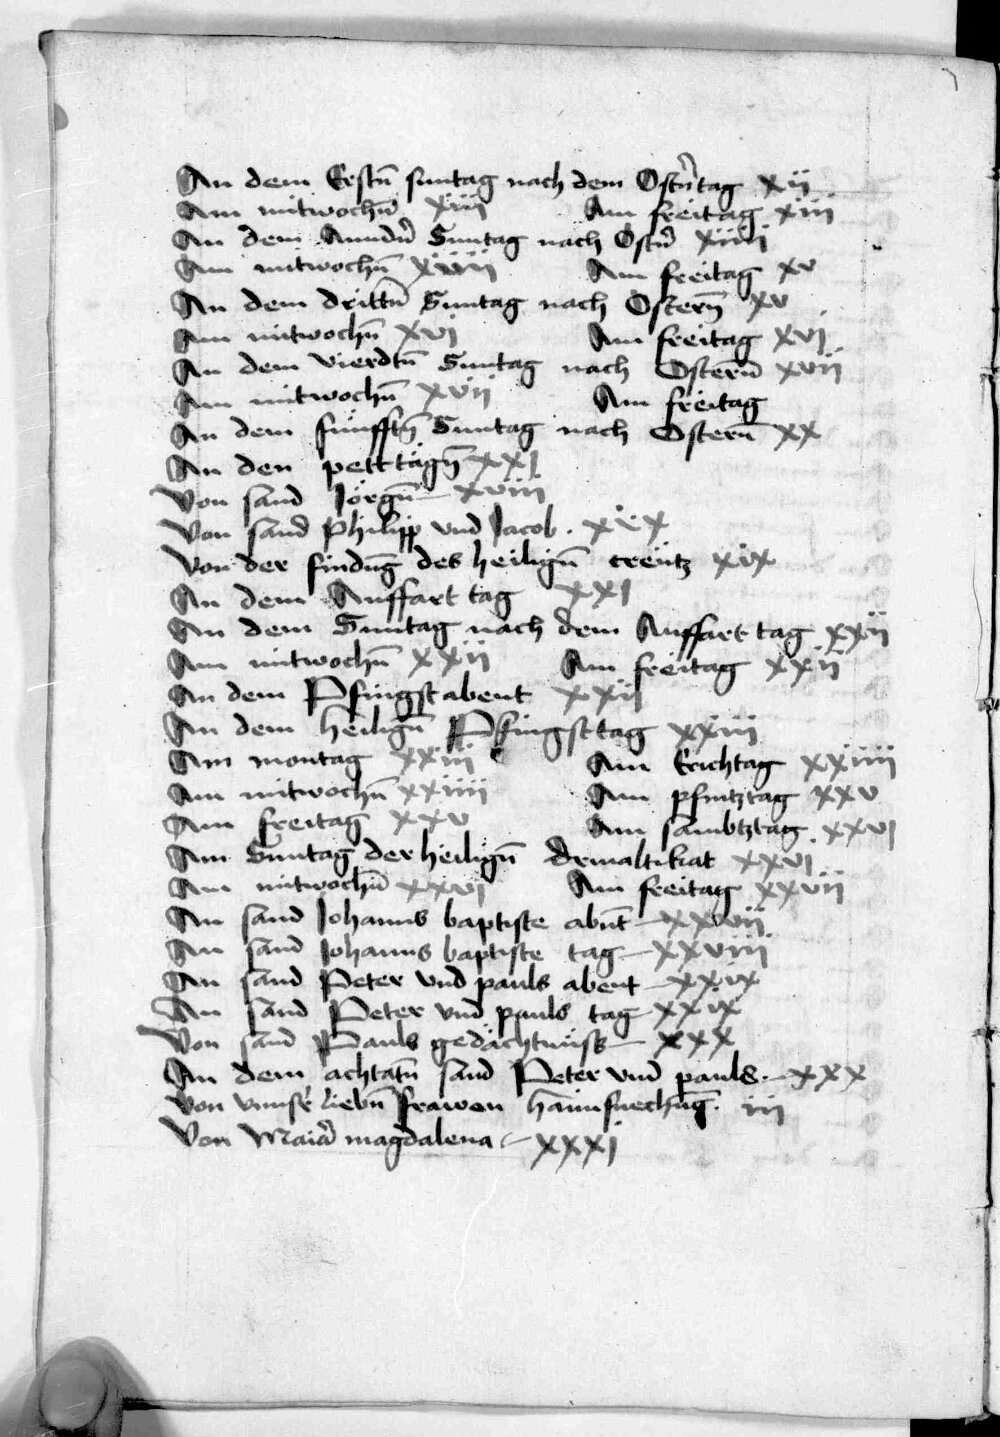 An dem Erstn̄ suntag nach dem Ostn̄tag xii
Am mitwochn̄ xiii Am freitag xiii
An dem Anndn̄ Suntag nach Ostn̄ xiiii
Am mitwochn̄ xiiii Am freitag xv
An dem drittn̄ Suntag nach Ostern̄ xv
Am mitwochn̄ xvi Am freitag xvi
An dem vierdtn̄ Suntag nach Ostern̄ xvii
Am mitwochn̄ xvii Am freitag
An dem fünfftn̄ Suntag nach Ostern̄ xx
An den pett tägn̄ xxi
Von sand Jörgn̄ xviii
Von sand Philipp vnd Jacob. xix
Von der findūg des heilign̄ creütz xix
An dem Auffart tag xxi
An dem Suntag nach dem Auffart tag xxii
Am mitwochn̄ xxii Am freitag xxii
An dem Pfingstabent xxii
An dem heilign̄ Pfingsttag xxiii
Am montag xxiii Am Erichtag xxiiii
Am mitwochn̄ xxiiii Am pfintztag xxv
Am freitag xxv Am sambtztag xxvi
Am Suntag der heilign̄ drinaltikat xxvi
Am mitwochn̄ xxvi Am freitag xxvii
An sand Johanns baptiste abn̄t xxvii
An sand Johanns baptiste tag xxviii
An sand Peter vnd pauls abent xxix
An sand Peter vnd pauls tag xxix
Von sand Pauls gedächtnüss xxx
An dem achtatn̄ sand Peter vnd pauls. xxx
Von vnnsr̄ liebn̄ frawen haimsuechūg. iii
Von Maria magdalena xxxi